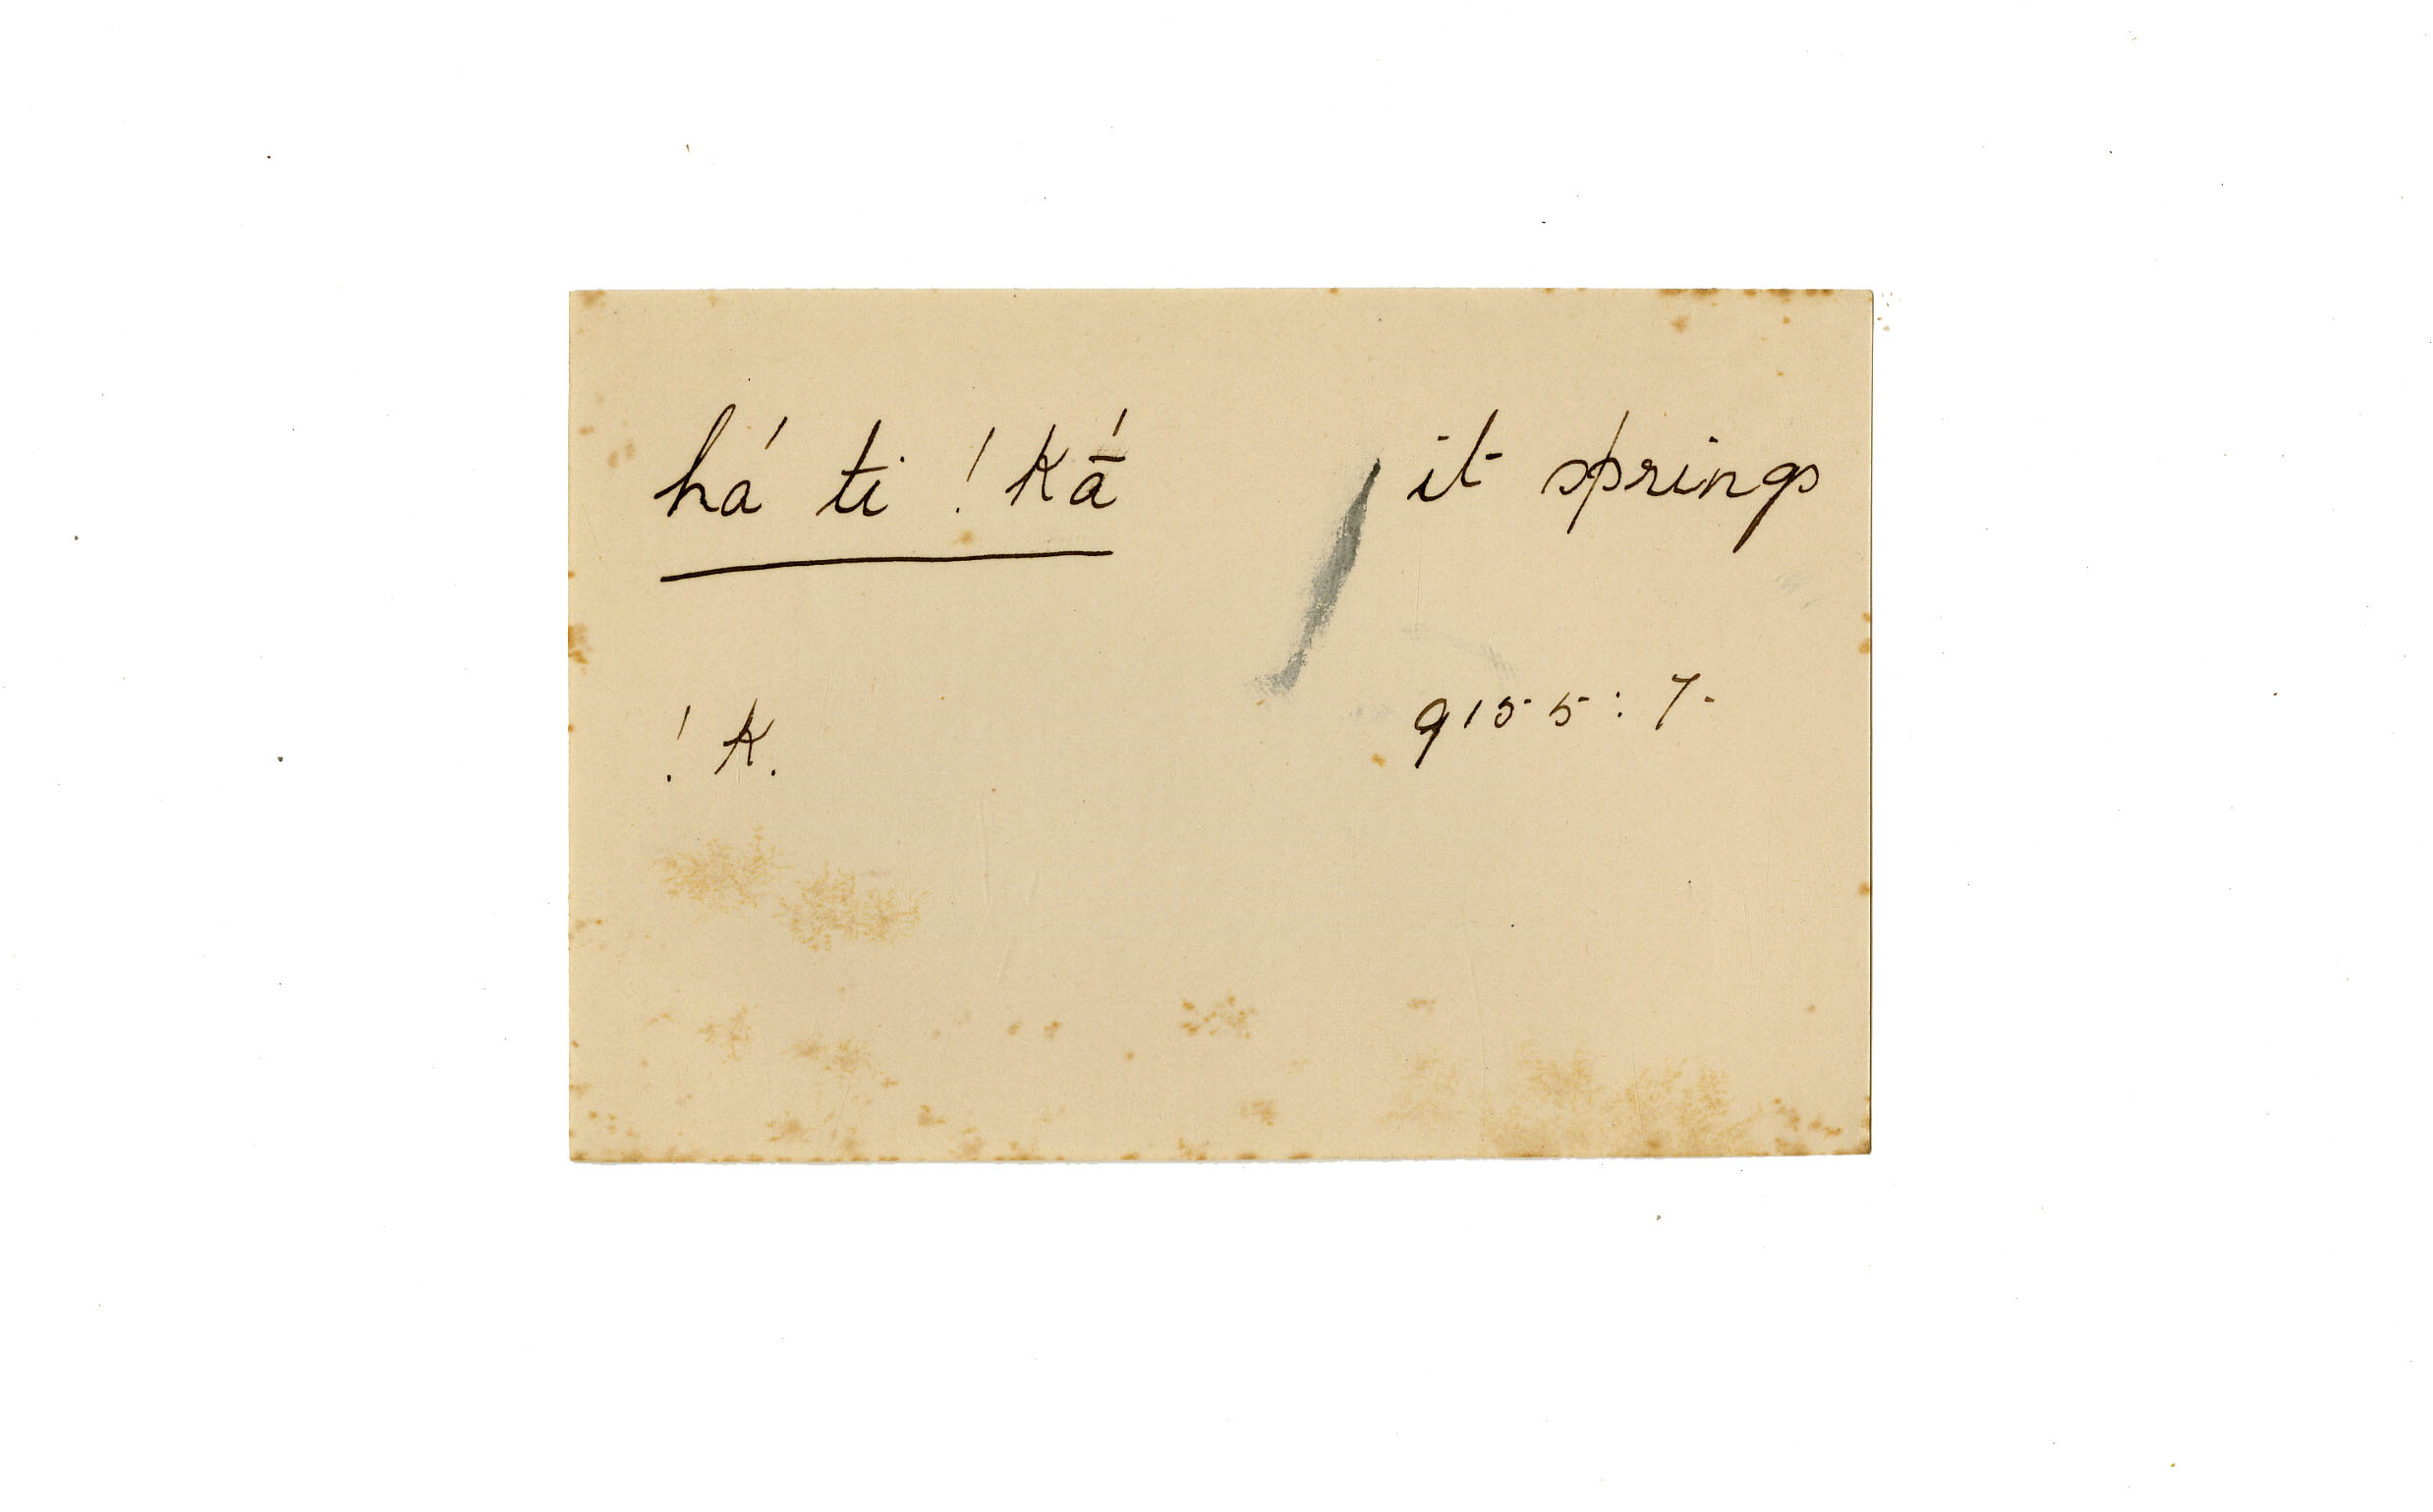 há ti !kā́ it springs
!k. 9155:7.